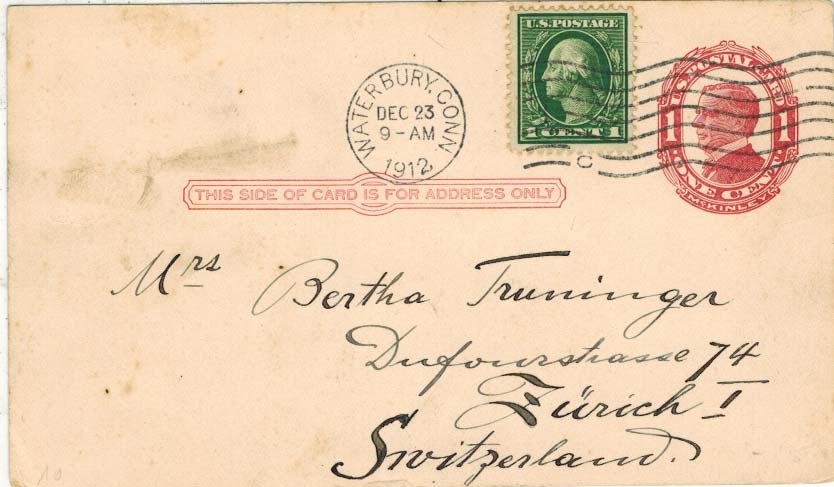 U.S. POSTAGE
1 CENT 1
WATERBURY, CONN
DEC 23
9-AM
1912
C
U.S. POSTAL CARD
1 1
ONE CENT
McKINLEY
THIS SIDE OF CARD IS FOR ADDRESS ONLY
Mrs Bertha Truninger
Dufourstrasse 74
Zürich I
Switzerland.
10